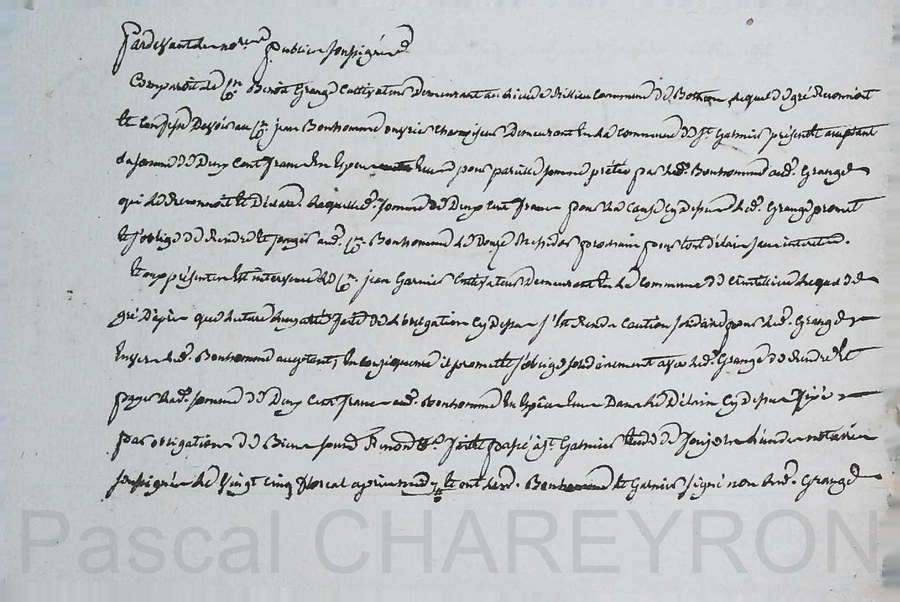 Pardevant les no.res publics soussignés
Comparoit le C.en Benoit Grange Cultivateur demeurant au lieu de Commune de Bothéon lequel de gré Reconnoit
et Confesse Devoir au C.en jean Bonhomme ouvrier Charpentier demeurant en la Commune de S.t Galmier présent et acceptant
la somme de Deux Cent francs En Espèce pour pareille somme prêtée par led. Bonhomme aud. Grange
qui le Reconnoit et Déclare. Laquelle somme de Deux Cent francs pour la Cause Cy dessus led. Grange promet
et s'oblige de Rendre et payer aud. C.en Bonhomme le Douze Messidor prochain pour tout délai sans interets.
Et au présent est intervenu le C.en jean Garnier Cultivateur demeurant En la Commune de lequel de
gré Après que lecture luy a été faite de l'obligation Cy dessus s'Est Rendu Caution solidaire pour led. Grange
Envers led. Bonhomme acceptant, En conséquence il promet et s'oblige solidairement avec led. Grange de Rendre Et
payer lad. somme de Deux Cent francs aud. Bonhomme En Espèce Dans le Délai Cy dessus fixé
par obligation de Biens soumis Renon.on &.a fait et passé à S.t Galmier Etude de l'un des notaires
soussignés le Vingt Cinq floréal après midy et ont lesd. Bonhomme et Garnier signé non led. Grange
Pascal CHAREYRON